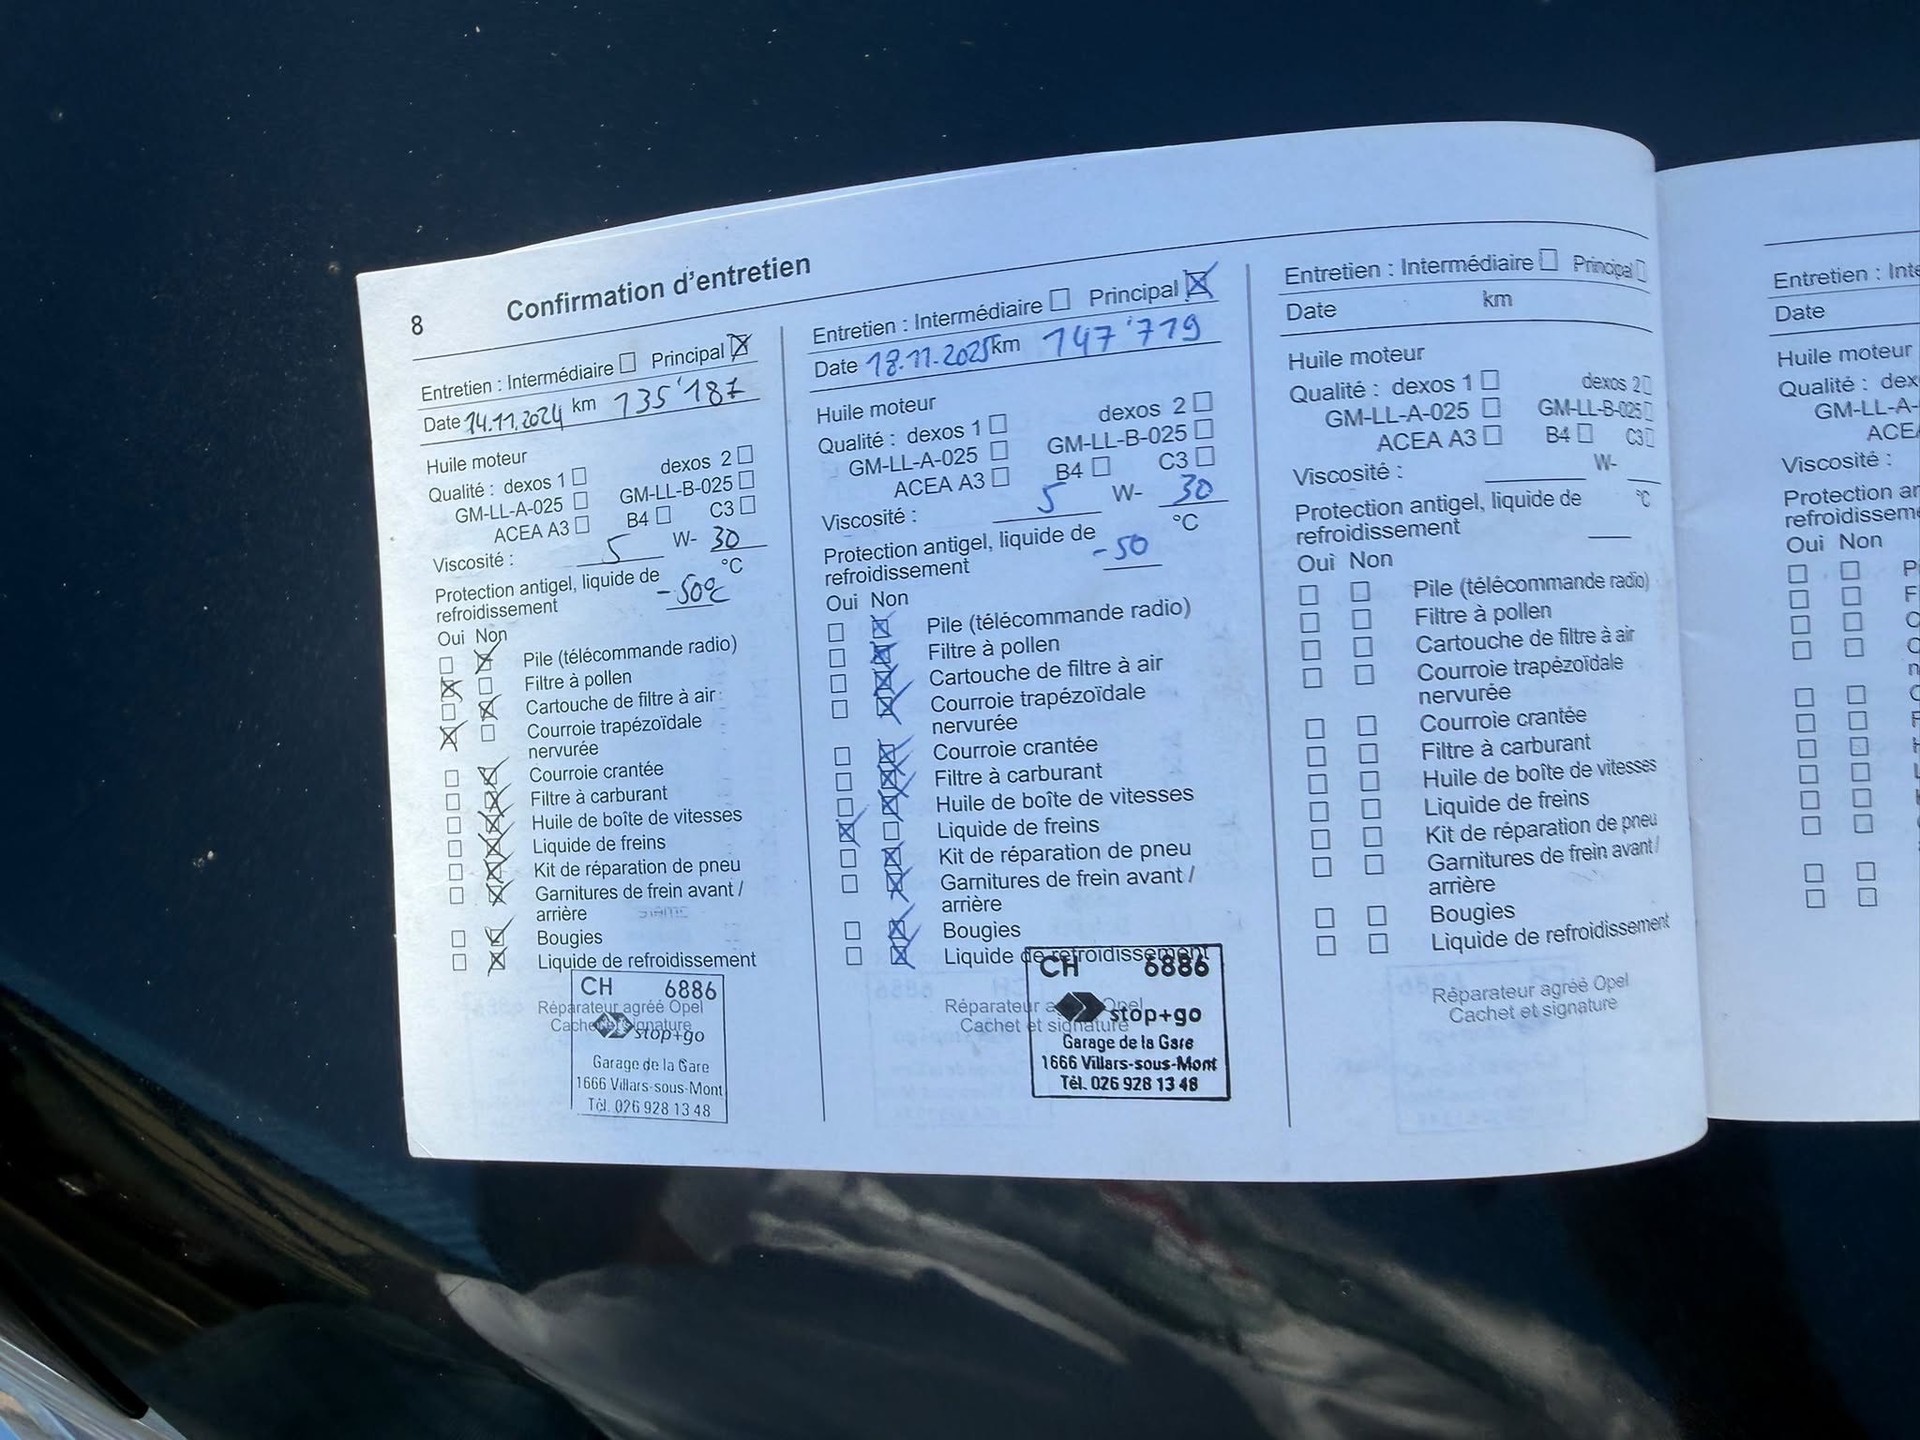 8 Confirmation d'entretien
Entretien : Intermédiaire Principal
Date 14.11.2024 km 135'187
Huile moteur
Qualité : dexos 1 dexos 2
GM-LL-A-025 GM-LL-B-025
ACEA A3 B4 C3
Viscosité : 5 W- 30
Protection antigel, liquide de °C
refroidissement -50°C
Oui Non
Pile (télécommande radio)
Filtre à pollen
Cartouche de filtre à air
Courroie trapézoïdale
nervurée
Courroie crantée
Filtre à carburant
Huile de boîte de vitesses
Liquide de freins
Kit de réparation de pneu
Garnitures de frein avant /
arrière
Bougies
Liquide de refroidissement
CH 6886
Réparateur agréé Opel
Cachet et signature
stop+go
Garage de la Gare
1666 Villars-sous-Mont
Tél. 026 928 13 48
Entretien : Intermédiaire Principal
Date 18.11.2025 km 147'719
Huile moteur
Qualité : dexos 1 dexos 2
GM-LL-A-025 GM-LL-B-025
ACEA A3 B4 C3
Viscosité : 5 W- 30
Protection antigel, liquide de °C
refroidissement -50
Oui Non
Pile (télécommande radio)
Filtre à pollen
Cartouche de filtre à air
Courroie trapézoïdale
nervurée
Courroie crantée
Filtre à carburant
Huile de boîte de vitesses
Liquide de freins
Kit de réparation de pneu
Garnitures de frein avant /
arrière
Bougies
Liquide de refroidissement
CH 6886
Réparateur agréé Opel
Cachet et signature
stop+go
Garage de la Gare
1666 Villars-sous-Mont
Tél. 026 928 13 48
Entretien : Intermédiaire Principal
Date km
Huile moteur
Qualité : dexos 1 dexos 2
GM-LL-A-025 GM-LL-B-025
ACEA A3 B4 C3
Viscosité : W-
Protection antigel, liquide de °C
refroidissement
Oui Non
Pile (télécommande radio)
Filtre à pollen
Cartouche de filtre à air
Courroie trapézoïdale
nervurée
Courroie crantée
Filtre à carburant
Huile de boîte de vitesses
Liquide de freins
Kit de réparation de pneu
Garnitures de frein avant /
arrière
Bougies
Liquide de refroidissement
Réparateur agréé Opel
Cachet et signature
Entretien : Inte
Date
Huile moteur
Qualité : dex
GM-LL-A-
ACEA
Viscosité :
Protection an
refroidisseme
Oui Non